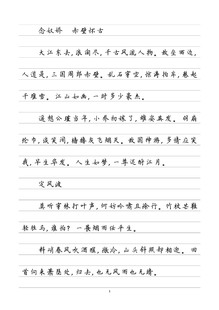 念奴娇　赤壁怀古
大江东去,浪淘尽,千古风流人物。故垒西边,
人道是,三国周郎赤壁。乱石穿空,惊涛拍岸,卷起
千堆雪。江山如画,一时多少豪杰。
遥想公瑾当年,小乔初嫁了,雄姿英发。羽扇
纶巾,谈笑间,樯橹灰飞烟灭。故国神游,多情应笑
我,早生华发。人生如梦,一尊还酹江月。
定风波
莫听穿林打叶声,何妨吟啸且徐行。竹杖芒鞋
轻胜马,谁怕?一蓑烟雨任平生。
料峭春风吹酒醒,微冷,山头斜照却相迎。回
首向来萧瑟处,归去,也无风雨也无晴。